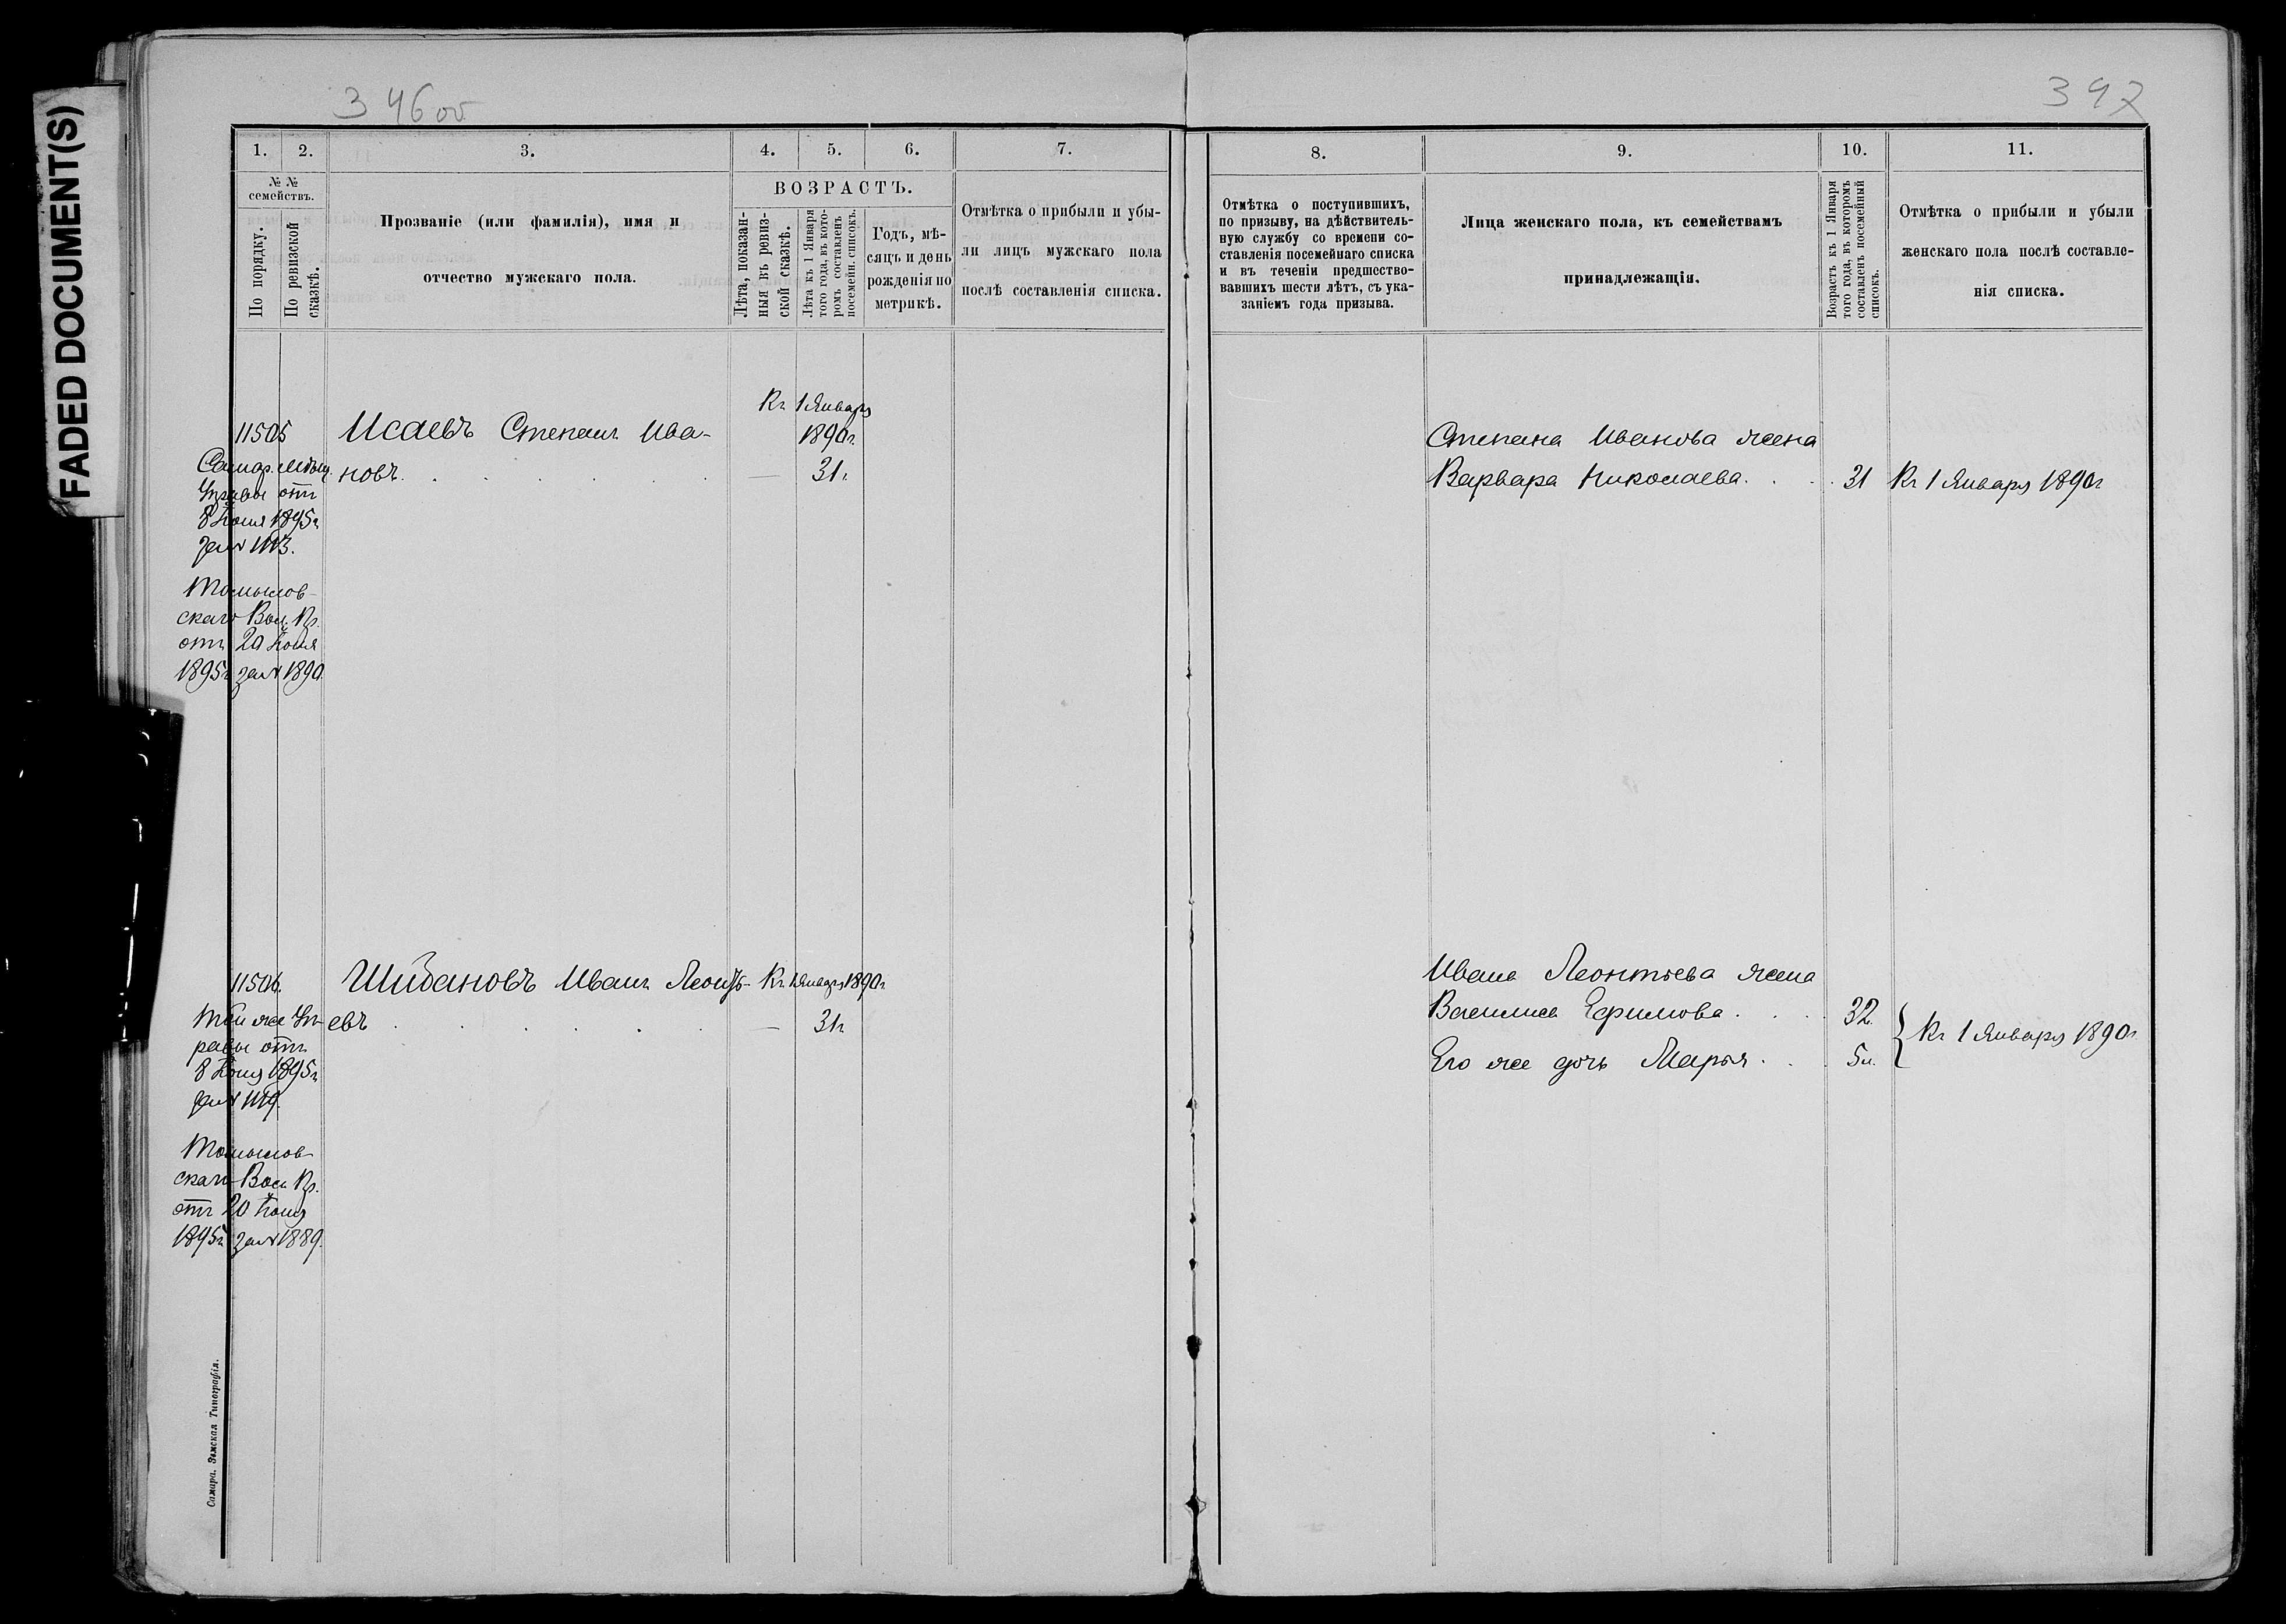 FADED DOCUMENT(S)
346 об
347
1. 2. 3. 4. 5. 6. 7.
№ №
семействъ.
По порядку.
По ревизской
сказкѣ.
Прозваніе (или фамилія), имя и
отчество мужскаго пола.
ВОЗРАСТЪ.
Лѣта, показан-
ныя въ ревиз-
ской сказкѣ.
Лѣта къ 1 Января
того года, въ кото-
ромъ составленъ
посемейн. списокъ.
Годъ, мѣ-
сяцъ и день
рожденія по
метрикѣ.
Отмѣтка о прибыли и убы-
ли лицъ мужскаго пола
послѣ составленія списка.
Къ 1 Января
11505 Исаевъ Степанъ Ива- 1890г
новъ. — 31г.
Самар. Мѣщ.
Управы отъ
8 Іюня 1895г
за № 1113.
Томылов-
скаго Вол. Пр.
отъ 20 Іюня
1895г за № 1890.
11506. Шибановъ Иванъ Леонть- Къ 1 Января 1890г
евъ — 31г
Той же Уп-
равы отъ
8 Іюня 1895г
за № 1119.
Томылов-
скаго Вол. Пр.
отъ 20 Іюня
1895г за № 1889.
Самара. Земская Типографія.
8. 9. 10. 11.
Отмѣтка о поступившихъ,
по призыву, на дѣйствитель-
ную службу со времени со-
ставленія посемейнаго списка
и въ теченіи предшество-
вавшихъ шести лѣтъ, съ ука-
заніемъ года призыва.
Лица женскаго пола, къ семействамъ
принадлежащія.
Возрастъ къ 1 Января
того года, въ которомъ
составленъ посемейный
списокъ.
Отмѣтка о прибыли и убыли
женскаго пола послѣ составле-
нія списка.
Степана Иванова жена
Варвара Николаева. 31 Къ 1 Января 1890г
Ивана Леонтьева жена
Василиса Ефимова. 32.
Къ 1 Января 1890г
Его же дочь Марья. 5л.